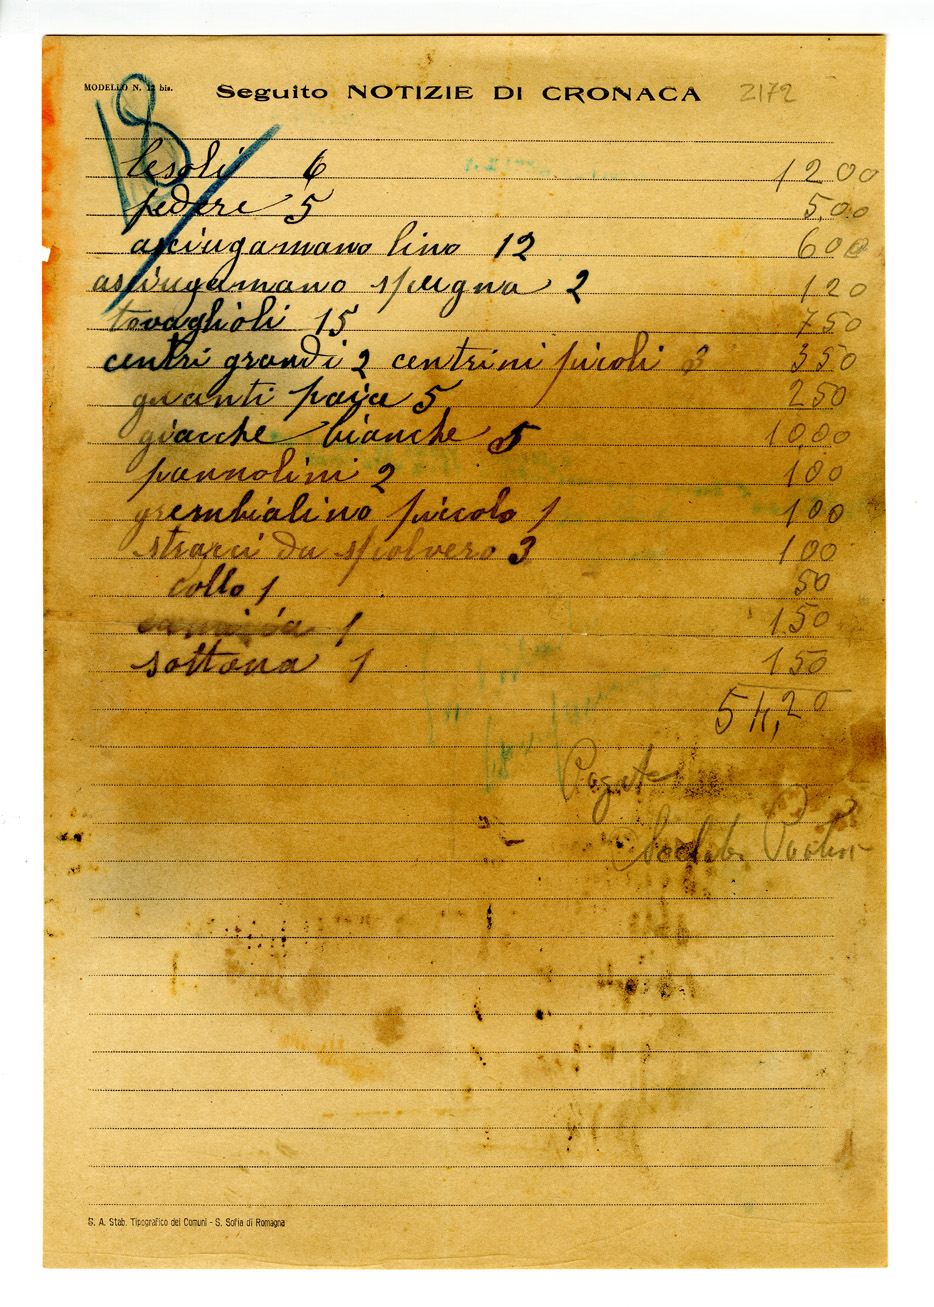 MODELLO N. 12 bis.
Seguito NOTIZIE DI CRONACA 2172
18
lesoli 6 1200
federe 5 5,00
asciugamano lino 12 600
asciugamano spugna 2 120
tovaglioli 15 750
centri grandi 2 centrini picoli 3 350
guanti paia 5 250
giacche bianche 5 10,00
pannolini 2 100
grembialino piccolo 1 100
stracci da spolvero 3 100
collo 1 50
camicia 1 150
sottana 1 150
54,20
Pagato
S. A. Stab. Tipografico dei Comuni - S. Sofia di Romagna